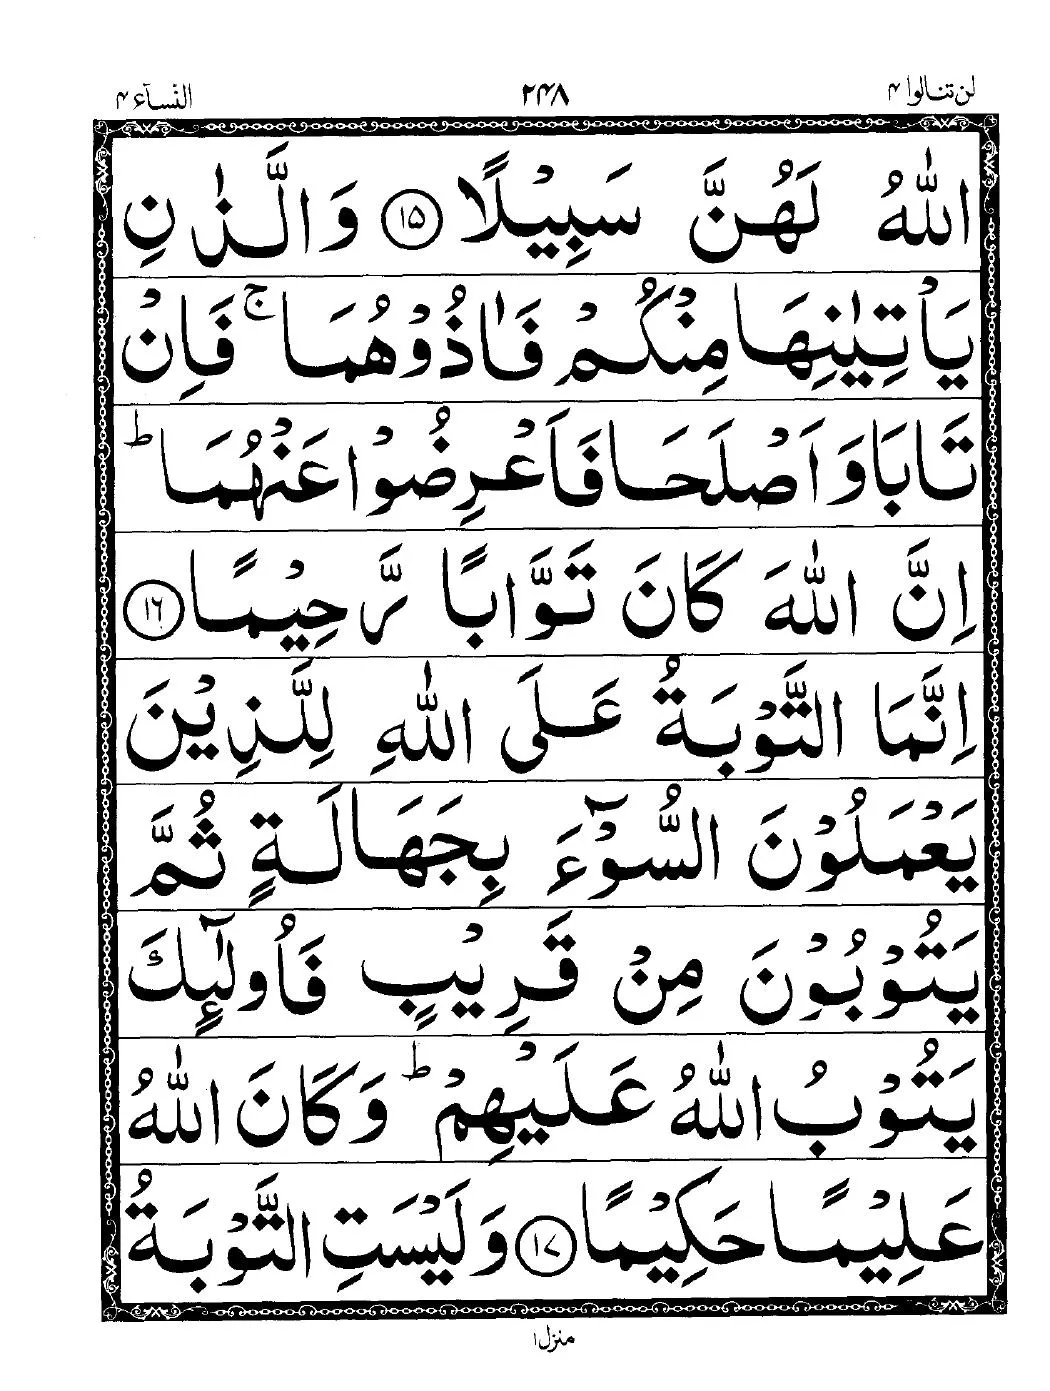 لن تنالوا ۴ ۲۴۸ النسآء ۴
اللّٰهُ لَهُنَّ سَبِيْلًا ۝۱۵ وَالَّذٰنِ
يَاْتِيٰنِهَا مِنْكُمْ فَاٰذُوْهُمَا ۚ فَاِنْ
تَابَا وَاَصْلَحَا فَاَعْرِضُوْا عَنْهُمَا ؕ
اِنَّ اللّٰهَ كَانَ تَوَّابًا رَّحِيْمًا ۝۱۶
اِنَّمَا التَّوْبَةُ عَلَى اللّٰهِ لِلَّذِيْنَ
يَعْمَلُوْنَ السُّوْٓءَ بِجَهَالَةٍ ثُمَّ
يَتُوْبُوْنَ مِنْ قَرِيْبٍ فَاُولٰٓئِكَ
يَتُوْبُ اللّٰهُ عَلَيْهِمْ ؕ وَكَانَ اللّٰهُ
عَلِيْمًا حَكِيْمًا ۝۱۷ وَلَيْسَتِ التَّوْبَةُ
منزل ۱